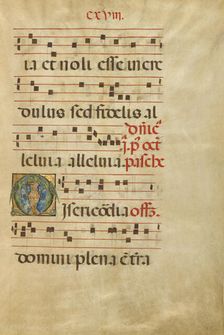 cxviii.
ia et noli esse incre
dulus sed fidelis al
leluia alleluia. Dñic̃
j. p̃ oct̃
pasche
Misericordia offz̃.
domini plena ẽ t̃ra